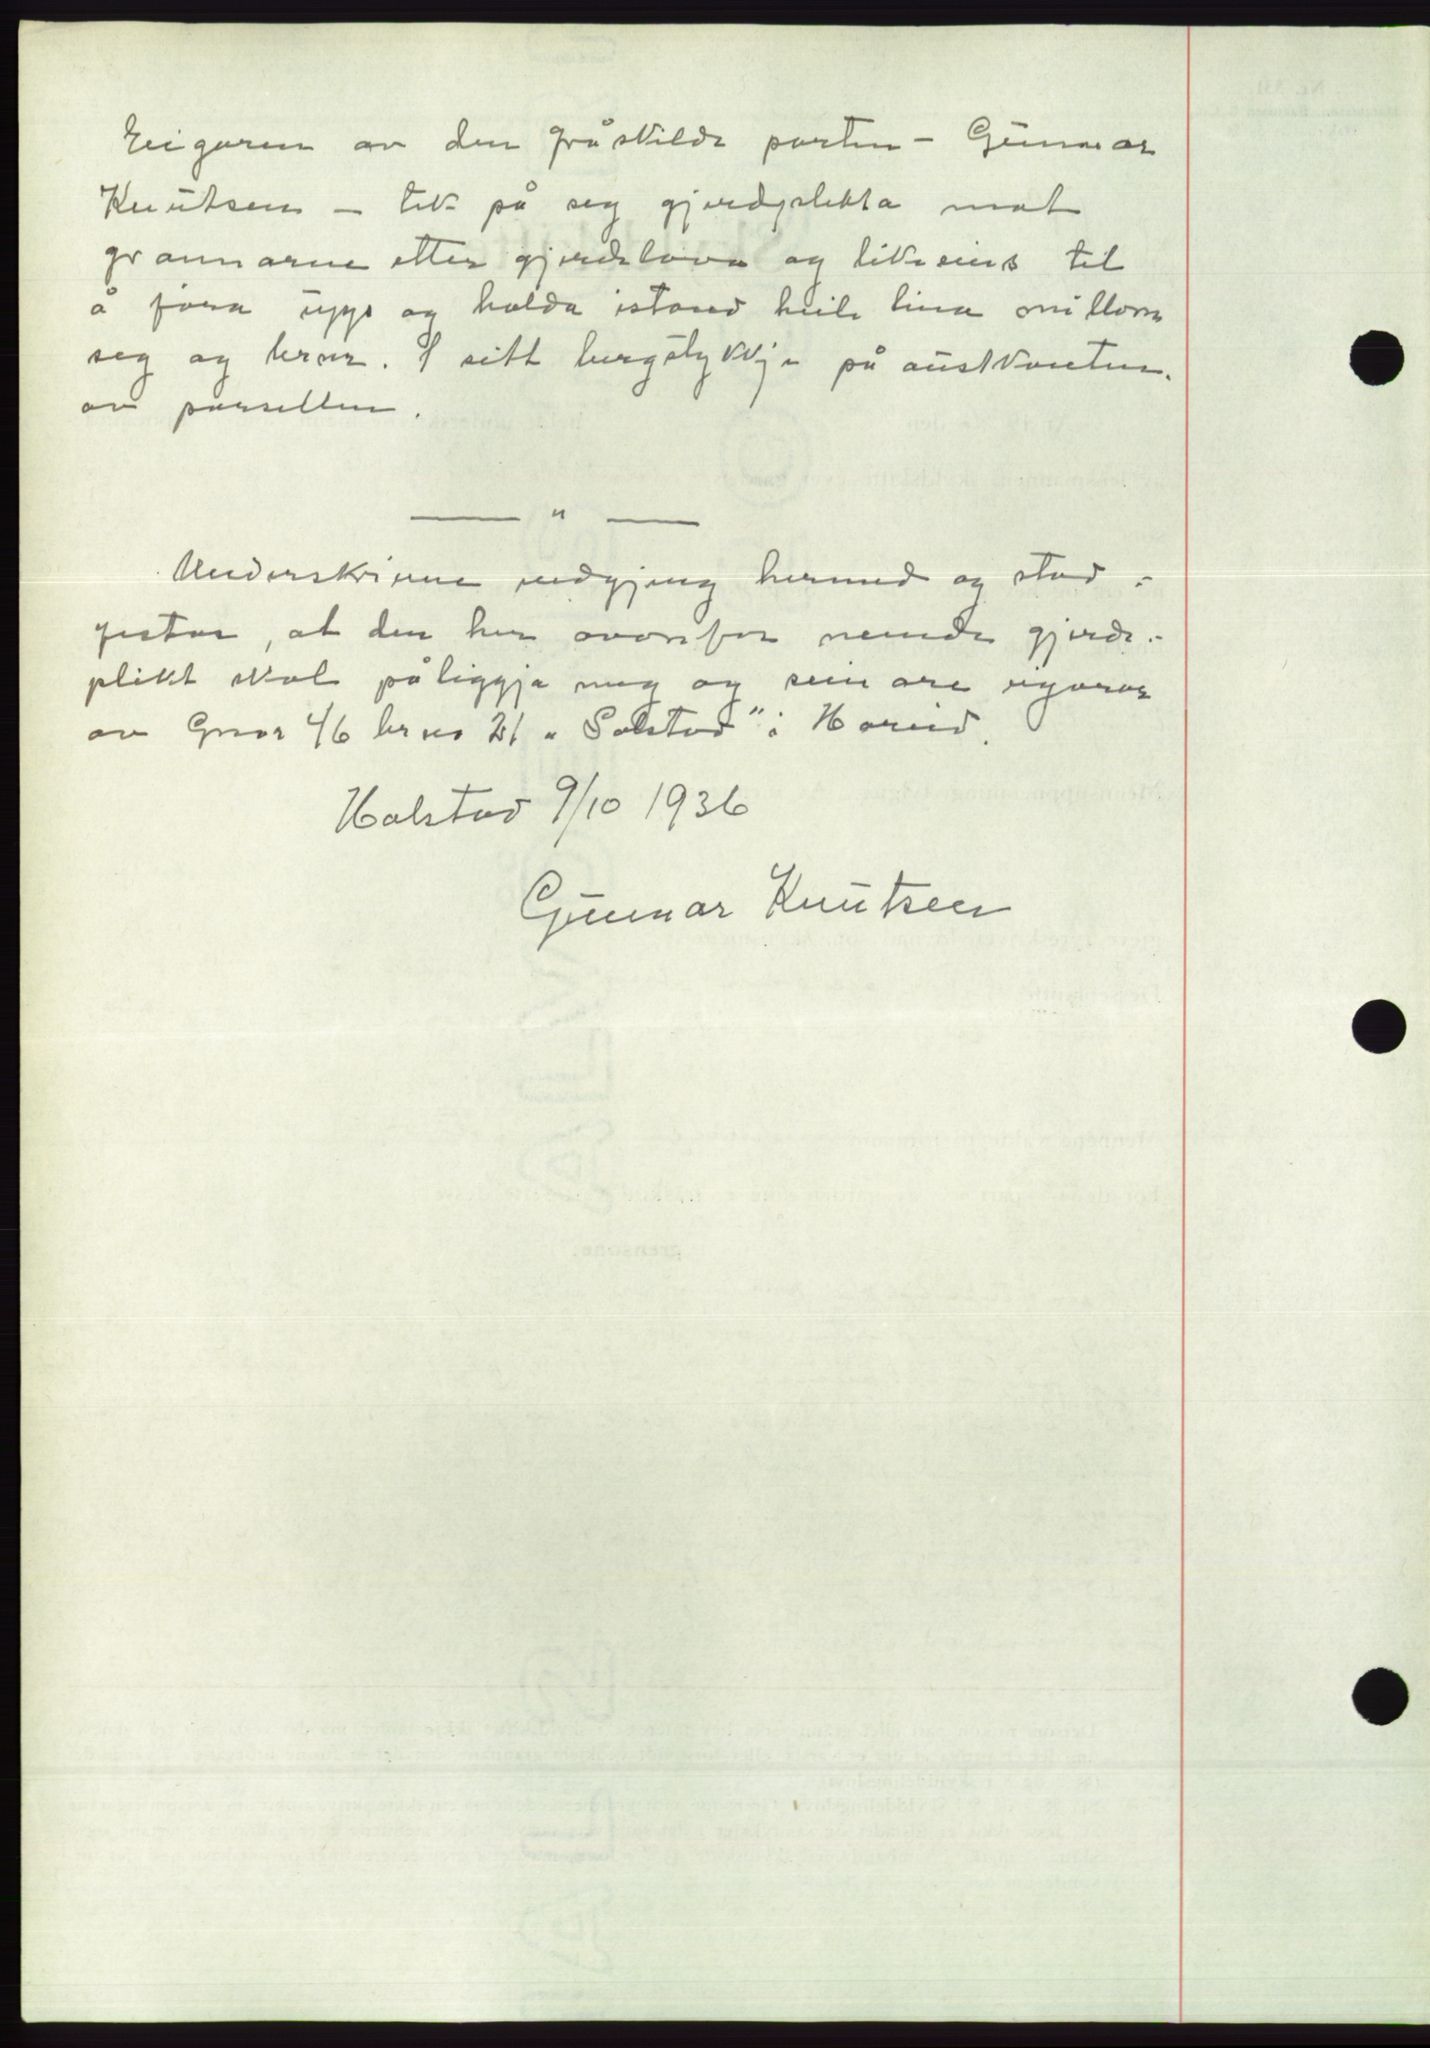 Eigaren av den fråskilde parten – Gunnar
Knutsen – tek på seg gjerdeplikta mot
grannarne etter gjerdelova og likeeins til
å føra upp og halda istand heile lina millom
seg og brnr. 1 sitt bergstykkje på austkanten
av parsellen.
— " —
Underskrivne vedgjeng hermed og stad-
festar, at den her ovanfor nemnde gjerde-
plikt skal påliggja meg og seinare eigarar
av Gnr 46 brno 21 „Solstad" i Hareid.
Halstad 9/10 1936
Gunnar Knutsen